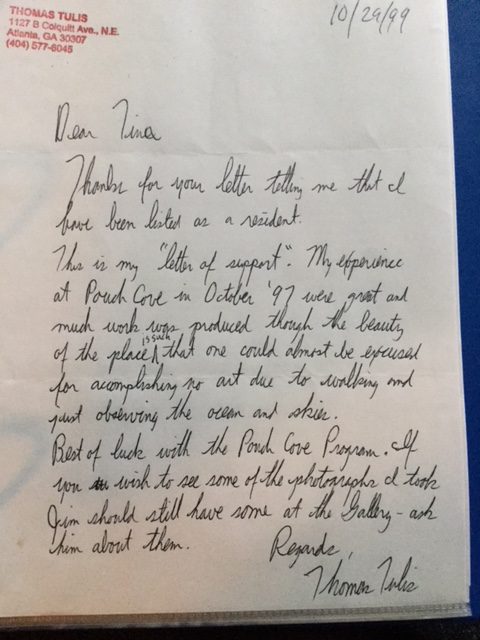 THOMAS TULIS
1127 B Colquitt Ave., N.E.
Atlanta, GA 30307
(404) 577-6045
10/29/99
Dear Tina
Thanks for your letter telling me that I
have been listed as a resident.
This is my "letter of support". My experience
at Pouch Cove in October '97 were great and
much work was produced though the beauty
of the place is such that one could almost be excused
for accomplishing no art due to walking and
just observing the ocean and skies.
Best of luck with the Pouch Cove Program. If
you wish to see some of the photographs I took
Jim should still have some at the Gallery - ask
him about them.
Regards,
Thomas Tulis